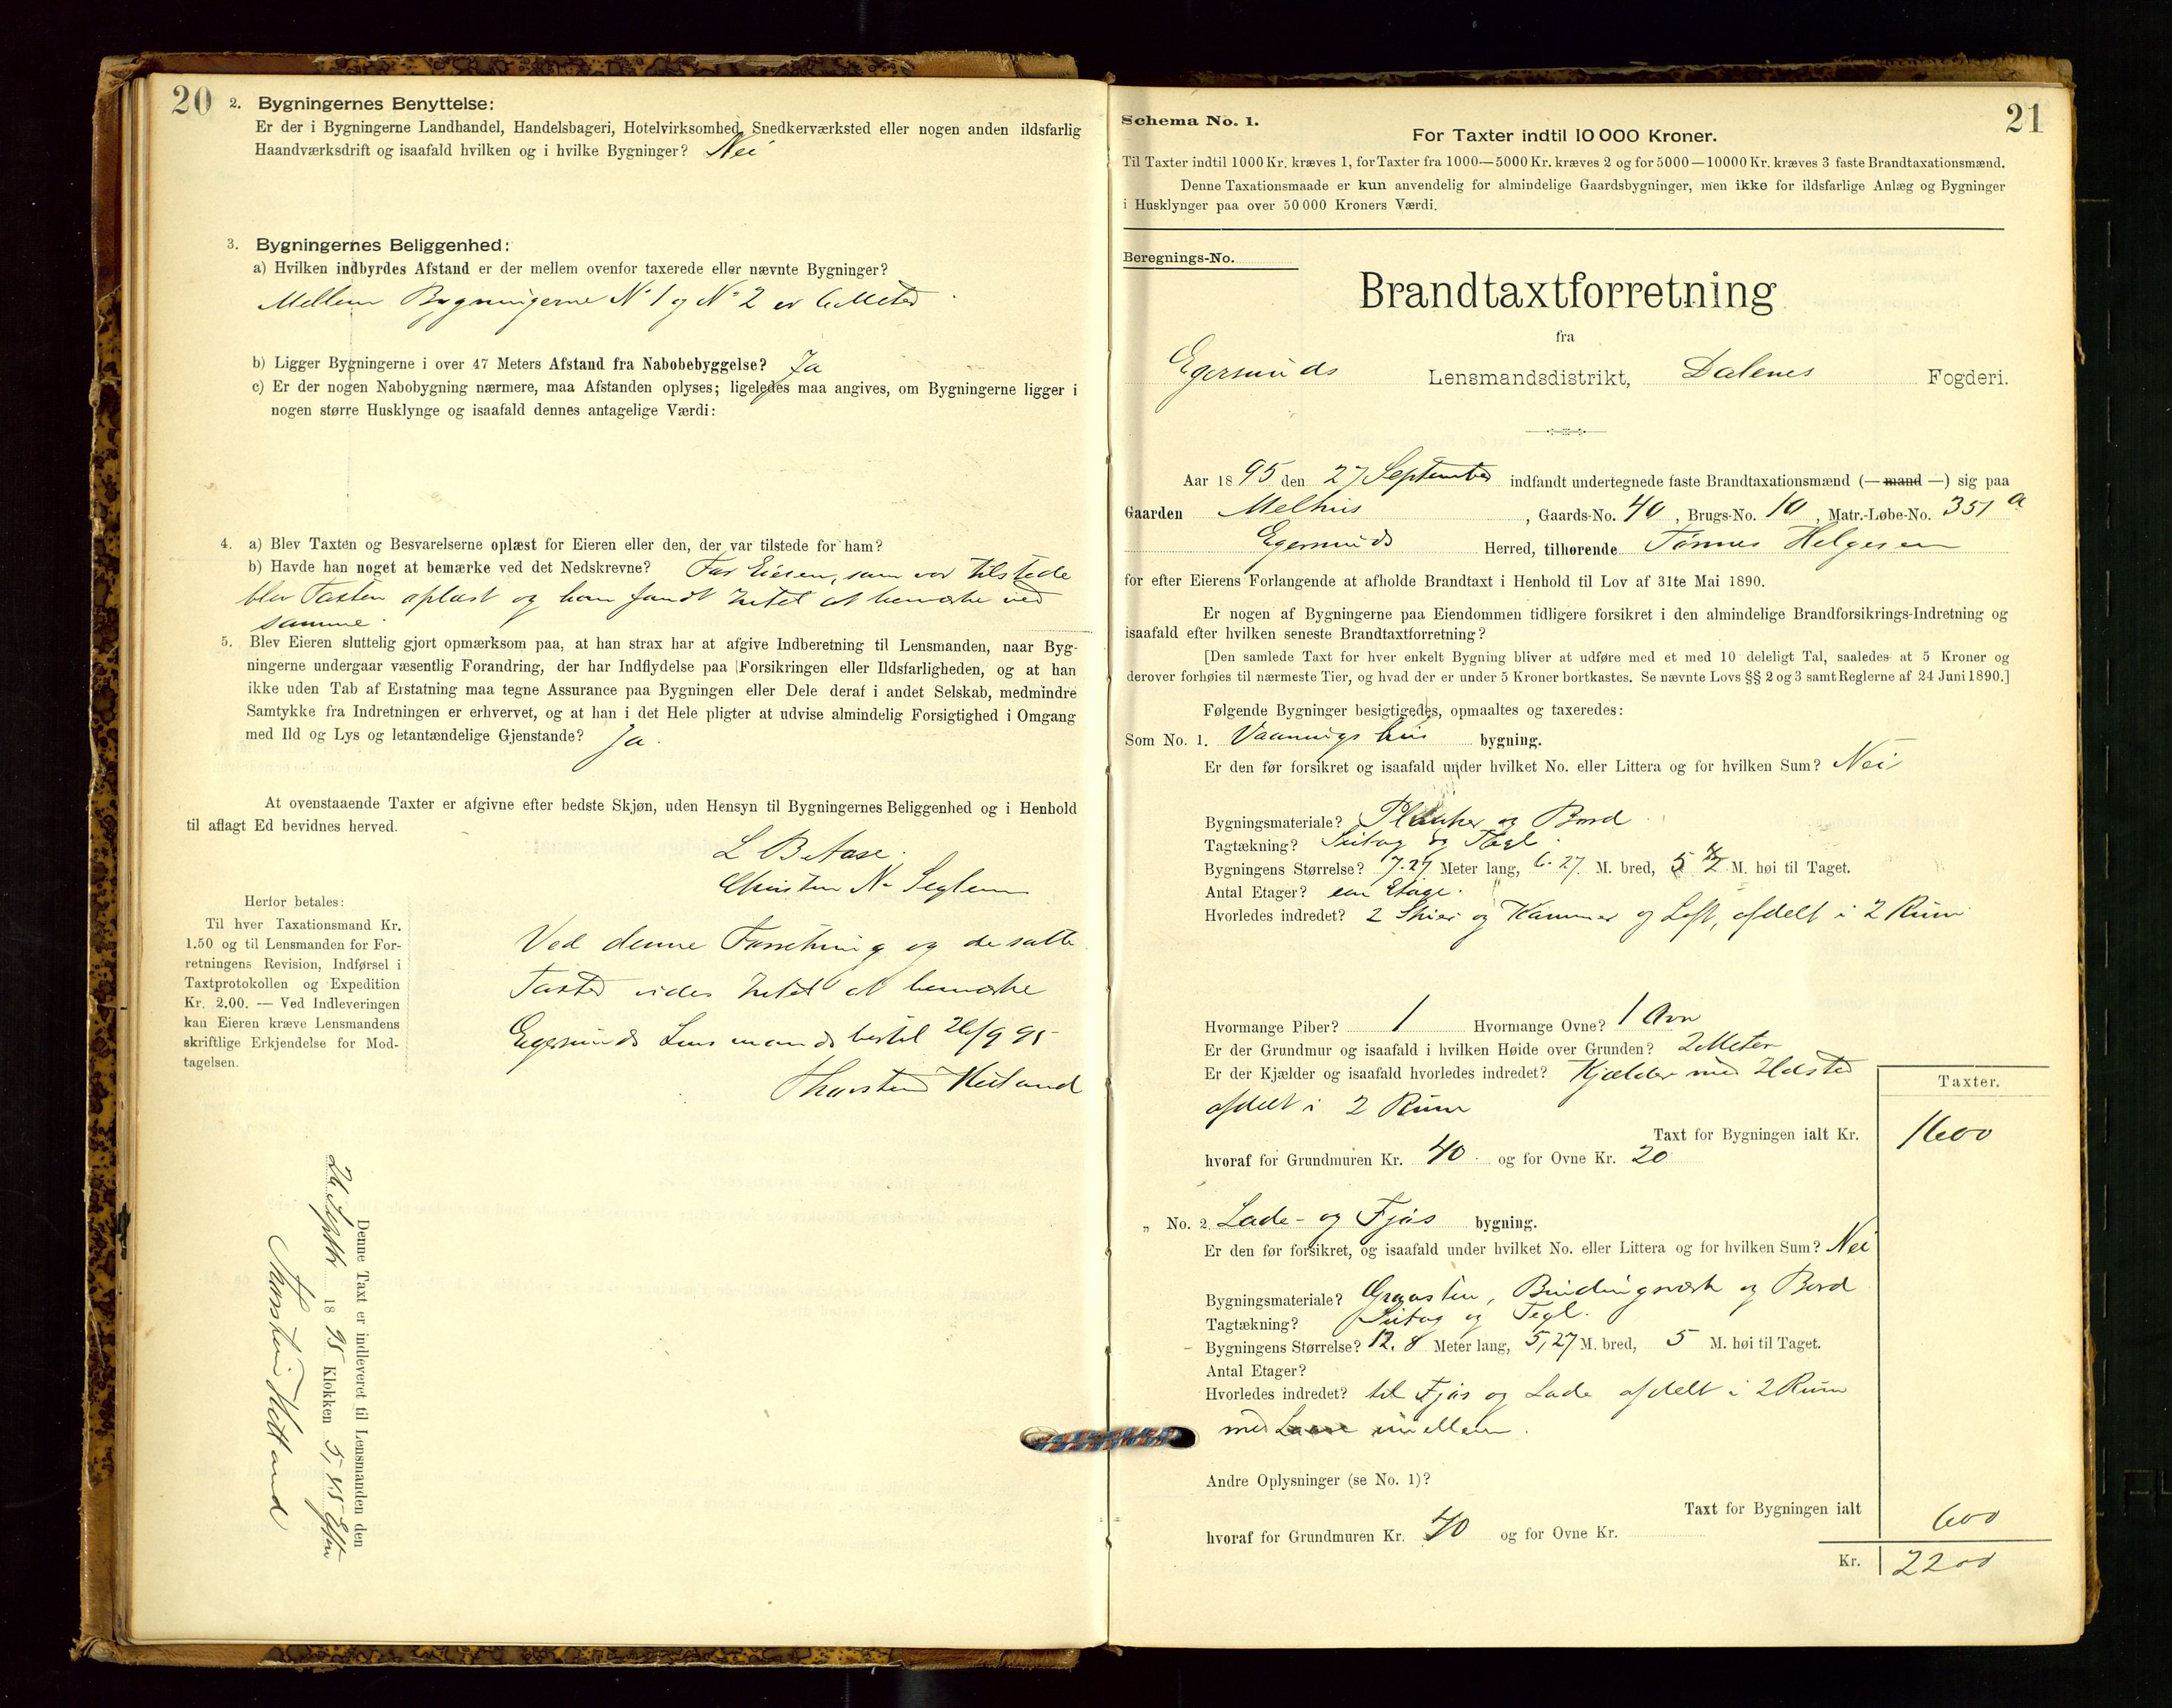 20
2. Bygningernes Benyttelse:
Er der i Bygningerne Landhandel, Handelsbageri, Hotelvirksomhed, Snedkerværksted eller nogen anden ildsfarlig
Haandværksdrift og isaafald hvilken og i hvilke Bygninger? Nei
3. Bygningernes Beliggenhed:
a) Hvilken indbyrdes Afstand er der mellem ovenfor taxerede eller nævnte Bygninger?
Mellem Bygningerne No 1 og No 2 er 6 Meter
b) Ligger Bygningerne i over 47 Meters Afstand fra Nabobebyggelse? Ja
c) Er der nogen Nabobygning nærmere, maa Afstanden oplyses; ligeledes maa angives, om Bygningerne ligger i
nogen større Husklynge og isaafald dennes antagelige Værdi:
4. a) Blev Taxten og Besvarelserne oplæst for Eieren eller den, der var tilstede for ham?
b) Havde han noget at bemærke ved det Nedskrevne? For Eieren, som var tilstede
blev Taxten oplæst og han fandt Intet at bemærke ved
samme.
5. Blev Eieren sluttelig gjort opmærksom paa, at han strax har at afgive Indberetning til Lensmanden, naar Byg-
ningerne undergaar væsentlig Forandring, der har Indflydelse paa Forsikringen eller Ildsfarligheden, og at han
ikke uden Tab af Erstatning maa tegne Assurance paa Bygningen eller Dele deraf i andet Selskab, medmindre
Samtykke fra Indretningen er erhvervet, og at han i det Hele pligter at udvise almindelig Forsigtighed i Omgang
med Ild og Lys og letantændelige Gjenstande? Ja.
At ovenstaaende Taxter er afgivne efter bedste Skjøn, uden Hensyn til Bygningernes Beliggenhed og i Henhold
til aflagt Ed bevidnes herved.
L B Aase.
Christen N. Seglem
Herfor betales:
Til hver Taxationsmand Kr.
1.50 og til Lensmanden for For-
retningens Revision, Indførsel i
Taxtprotokollen og Expedition
Kr. 2.00. — Ved Indleveringen
kan Eieren kræve Lensmandens
skriftlige Erkjendelse for Mod-
tagelsen.
Ved denne Forretning og de satte
Taxter vides Intet at bemærke
Egersunds Lensmandsbestil 28/9 95
Thorstein Hetland
Denne Taxt er indleveret til Lensmanden den
28 Septbr 1895 Klokken 5, Eftm
Thorstein Hetland
21
Schema No. 1.
For Taxter indtil 10 000 Kroner.
Til Taxter indtil 1000 Kr. kræves 1, for Taxter fra 1000—5000 Kr. kræves 2 og for 5000—10000 Kr. kræves 3 faste Brandtaxationsmænd.
Denne Taxationsmaade er kun anvendelig for almindelige Gaardsbygninger, men ikke for ildsfarlige Anlæg og Bygninger
i Husklynger paa over 50 000 Kroners Værdi.
Beregnings-No.
Brandtaxtforretning
fra
Egersunds Lensmandsdistrikt, Dalenes Fogderi.
Aar 1895 den 27 September indfandt undertegnede faste Brandtaxationsmænd (— mand —) sig paa
Gaarden Melhus, Gaards-No. 40, Brugs-No. 10, Matr.-Løbe-No. 351 a
Egersunds Herred, tilhørende Tønnes Helgesen
for efter Eierens Forlangende at afholde Brandtaxt i Henhold til Lov af 31te Mai 1890.
Er nogen af Bygningerne paa Eiendommen tidligere forsikret i den almindelige Brandforsikrings-Indretning og
isaafald efter hvilken seneste Brandtaxtforretning?
[Den samlede Taxt for hver enkelt Bygning bliver at udføre med et med 10 deleligt Tal, saaledes at 5 Kroner og
derover forhøies til nærmeste Tier, og hvad der er under 5 Kroner bortkastes. Se nævnte Lovs §§ 2 og 3 samt Reglerne af 24 Juni 1890.]
Følgende Bygninger besigtigedes, opmaaltes og taxeredes:
Som No. 1. Vaaningshus bygning.
Er den før forsikret og isaafald under hvilket No. eller Littera og for hvilken Sum? Nei
Bygningsmateriale? Planker og Bord
Tagtækning? Sutag og Tegl.
Bygningens Størrelse? 7.27 Meter lang, 6.27 M. bred, 5 M. høi til Taget.
Antal Etager? een Etage.
Hvorledes indredet? 2 Stuer og Kammer og Loft, afdelt i 2 Rum
Hvormange Piber? 1 Hvormange Ovne? 1 Ovn
Er der Grundmur og isaafald i hvilken Høide over Grunden? 2 Meter
Er der Kjælder og isaafald hvorledes indredet? Kjælder med Ildsted
afdelt i 2 Rum
Taxter.
Taxt for Bygningen ialt Kr. 1600
hvoraf for Grundmuren Kr. 40 og for Ovne Kr. 20
„ No. 2. Lade- og Fjøs bygning.
Er den før forsikret, og isaafald under hvilket No. eller Littera og for hvilken Sum? Nei
Bygningsmateriale? Graasten, Bindingsværk og Bord
Tagtækning? Sutag og Tegl.
Bygningens Størrelse? 12.8 Meter lang, 5,27 M. bred, 5 M. høi til Taget.
Antal Etager?
Hvorledes indredet? til Fjøs og Lade afdelt i 2 Rum
med imellem.
Andre Oplysninger (se No. 1)?
Taxt for Bygningen ialt 600
hvoraf for Grundmuren Kr. 40 og for Ovne Kr.
Kr. 2200